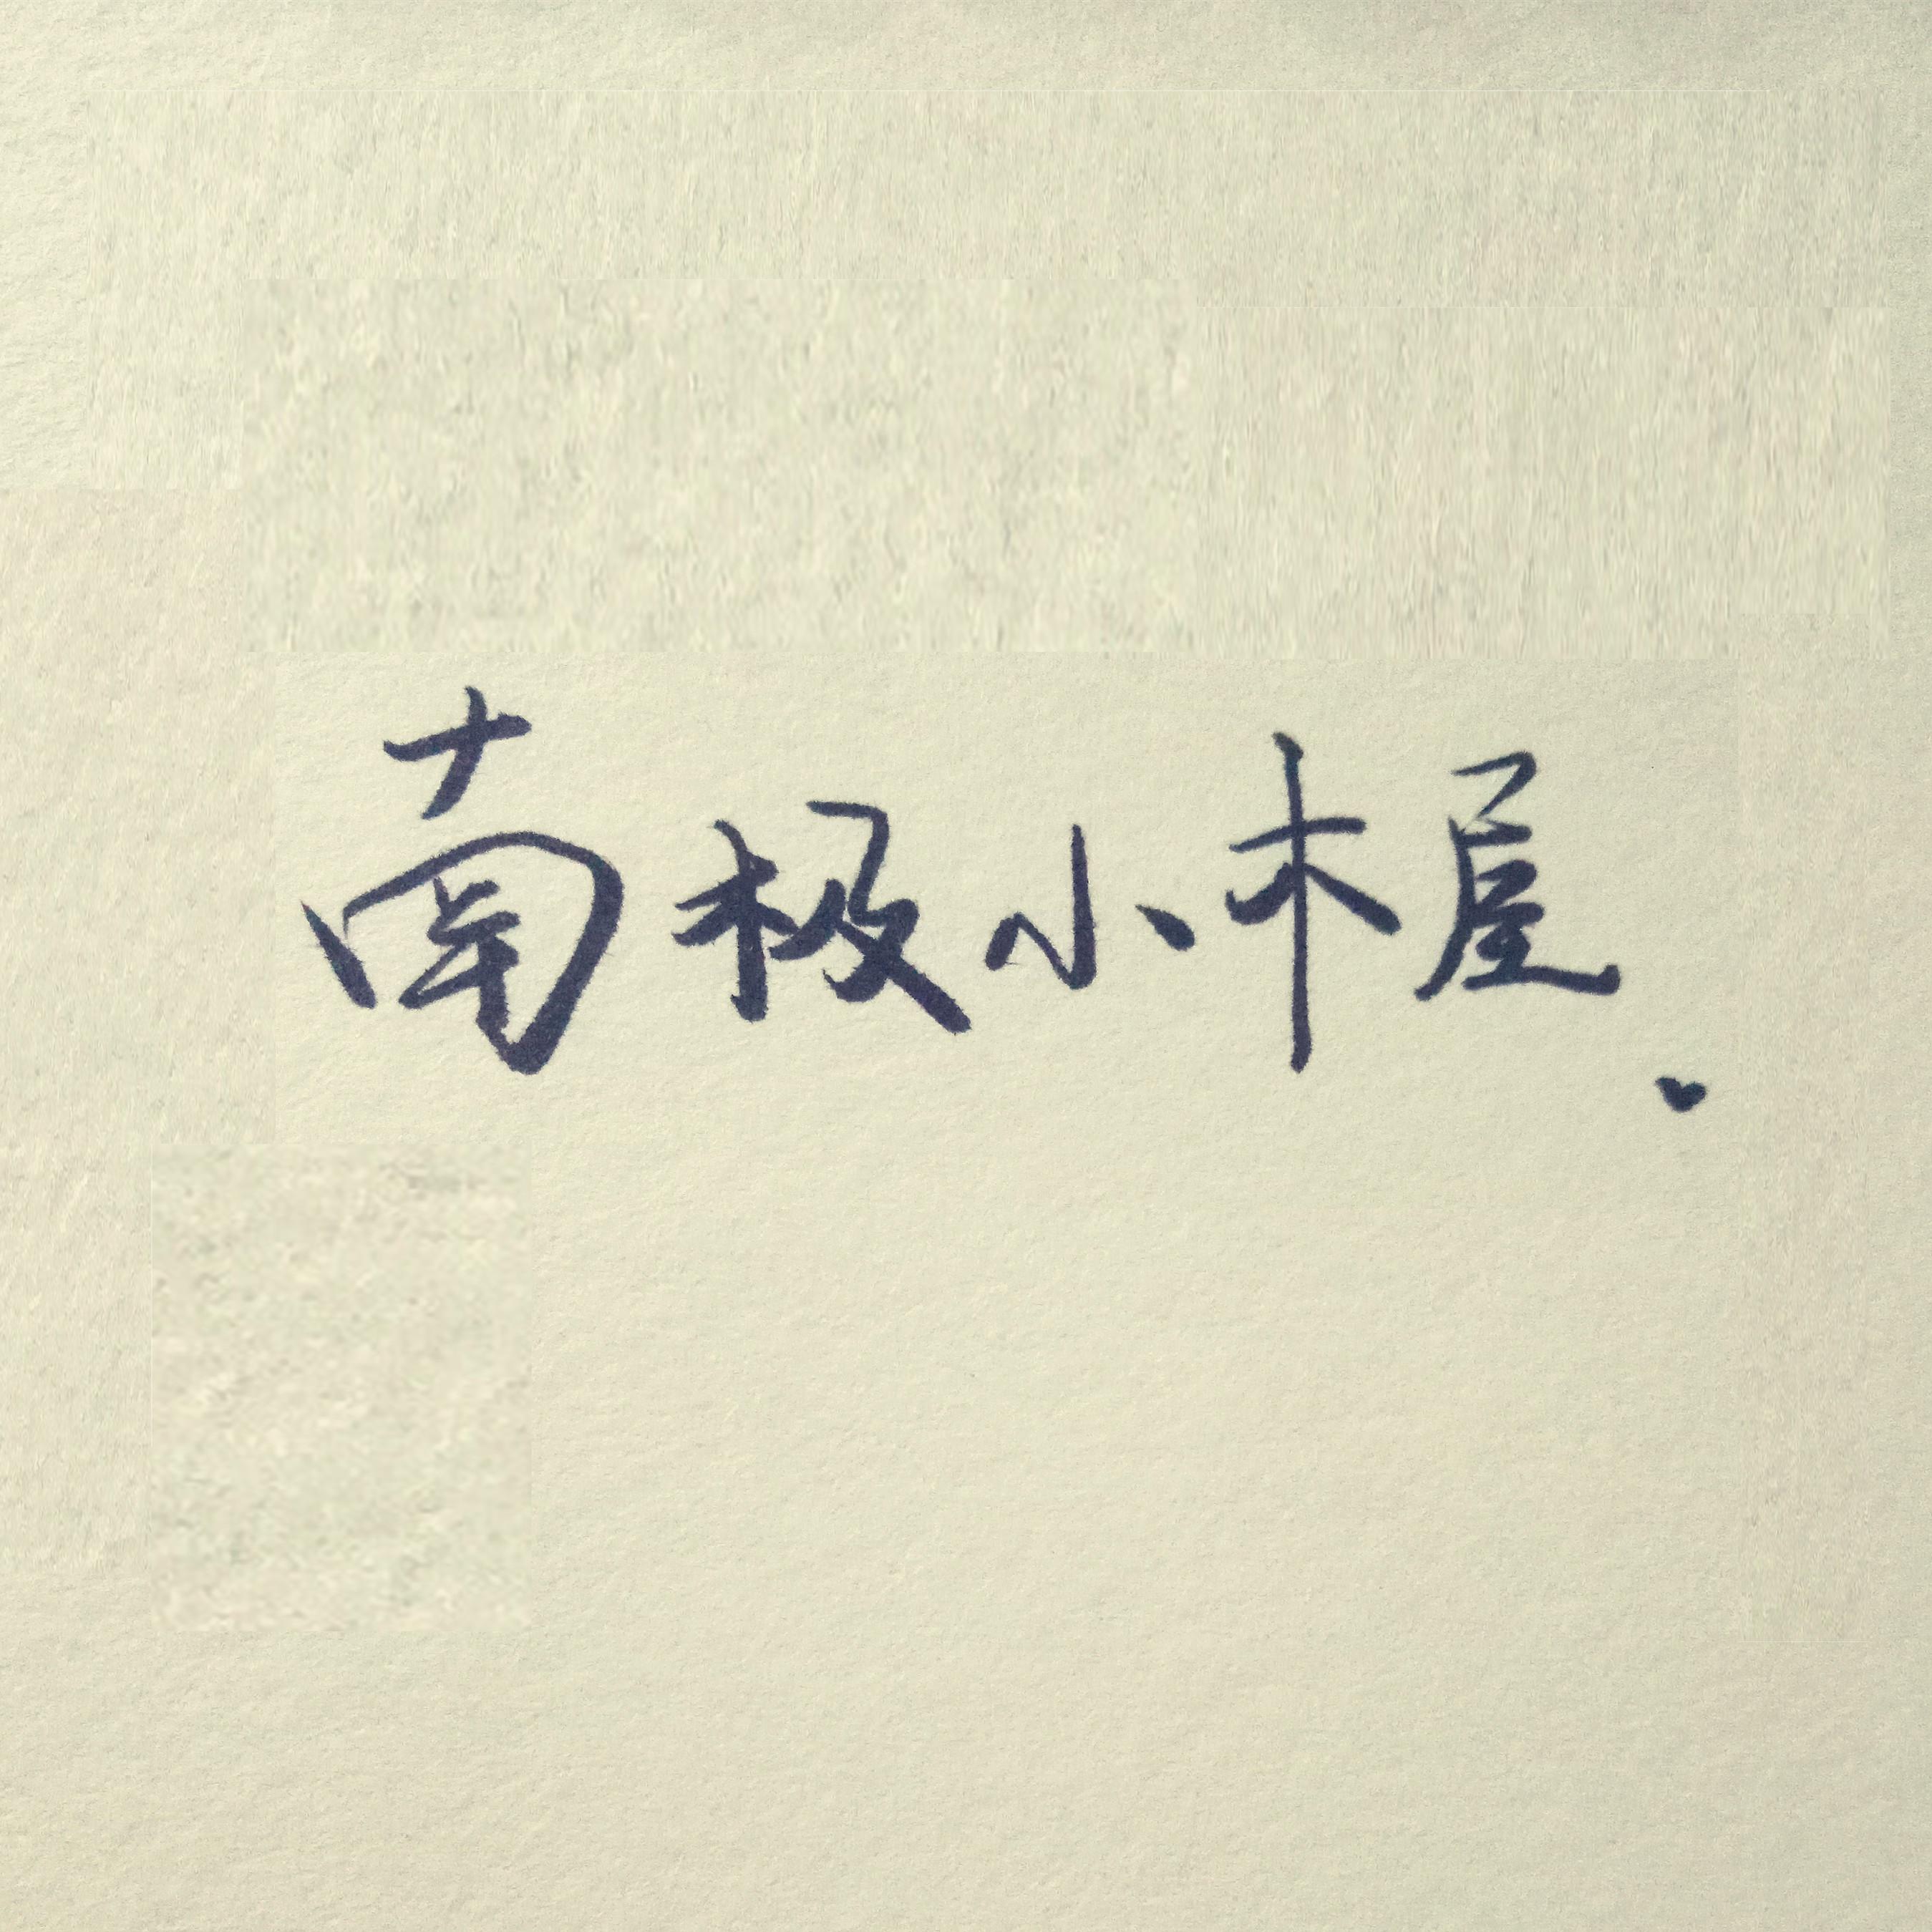 南极小木屋.